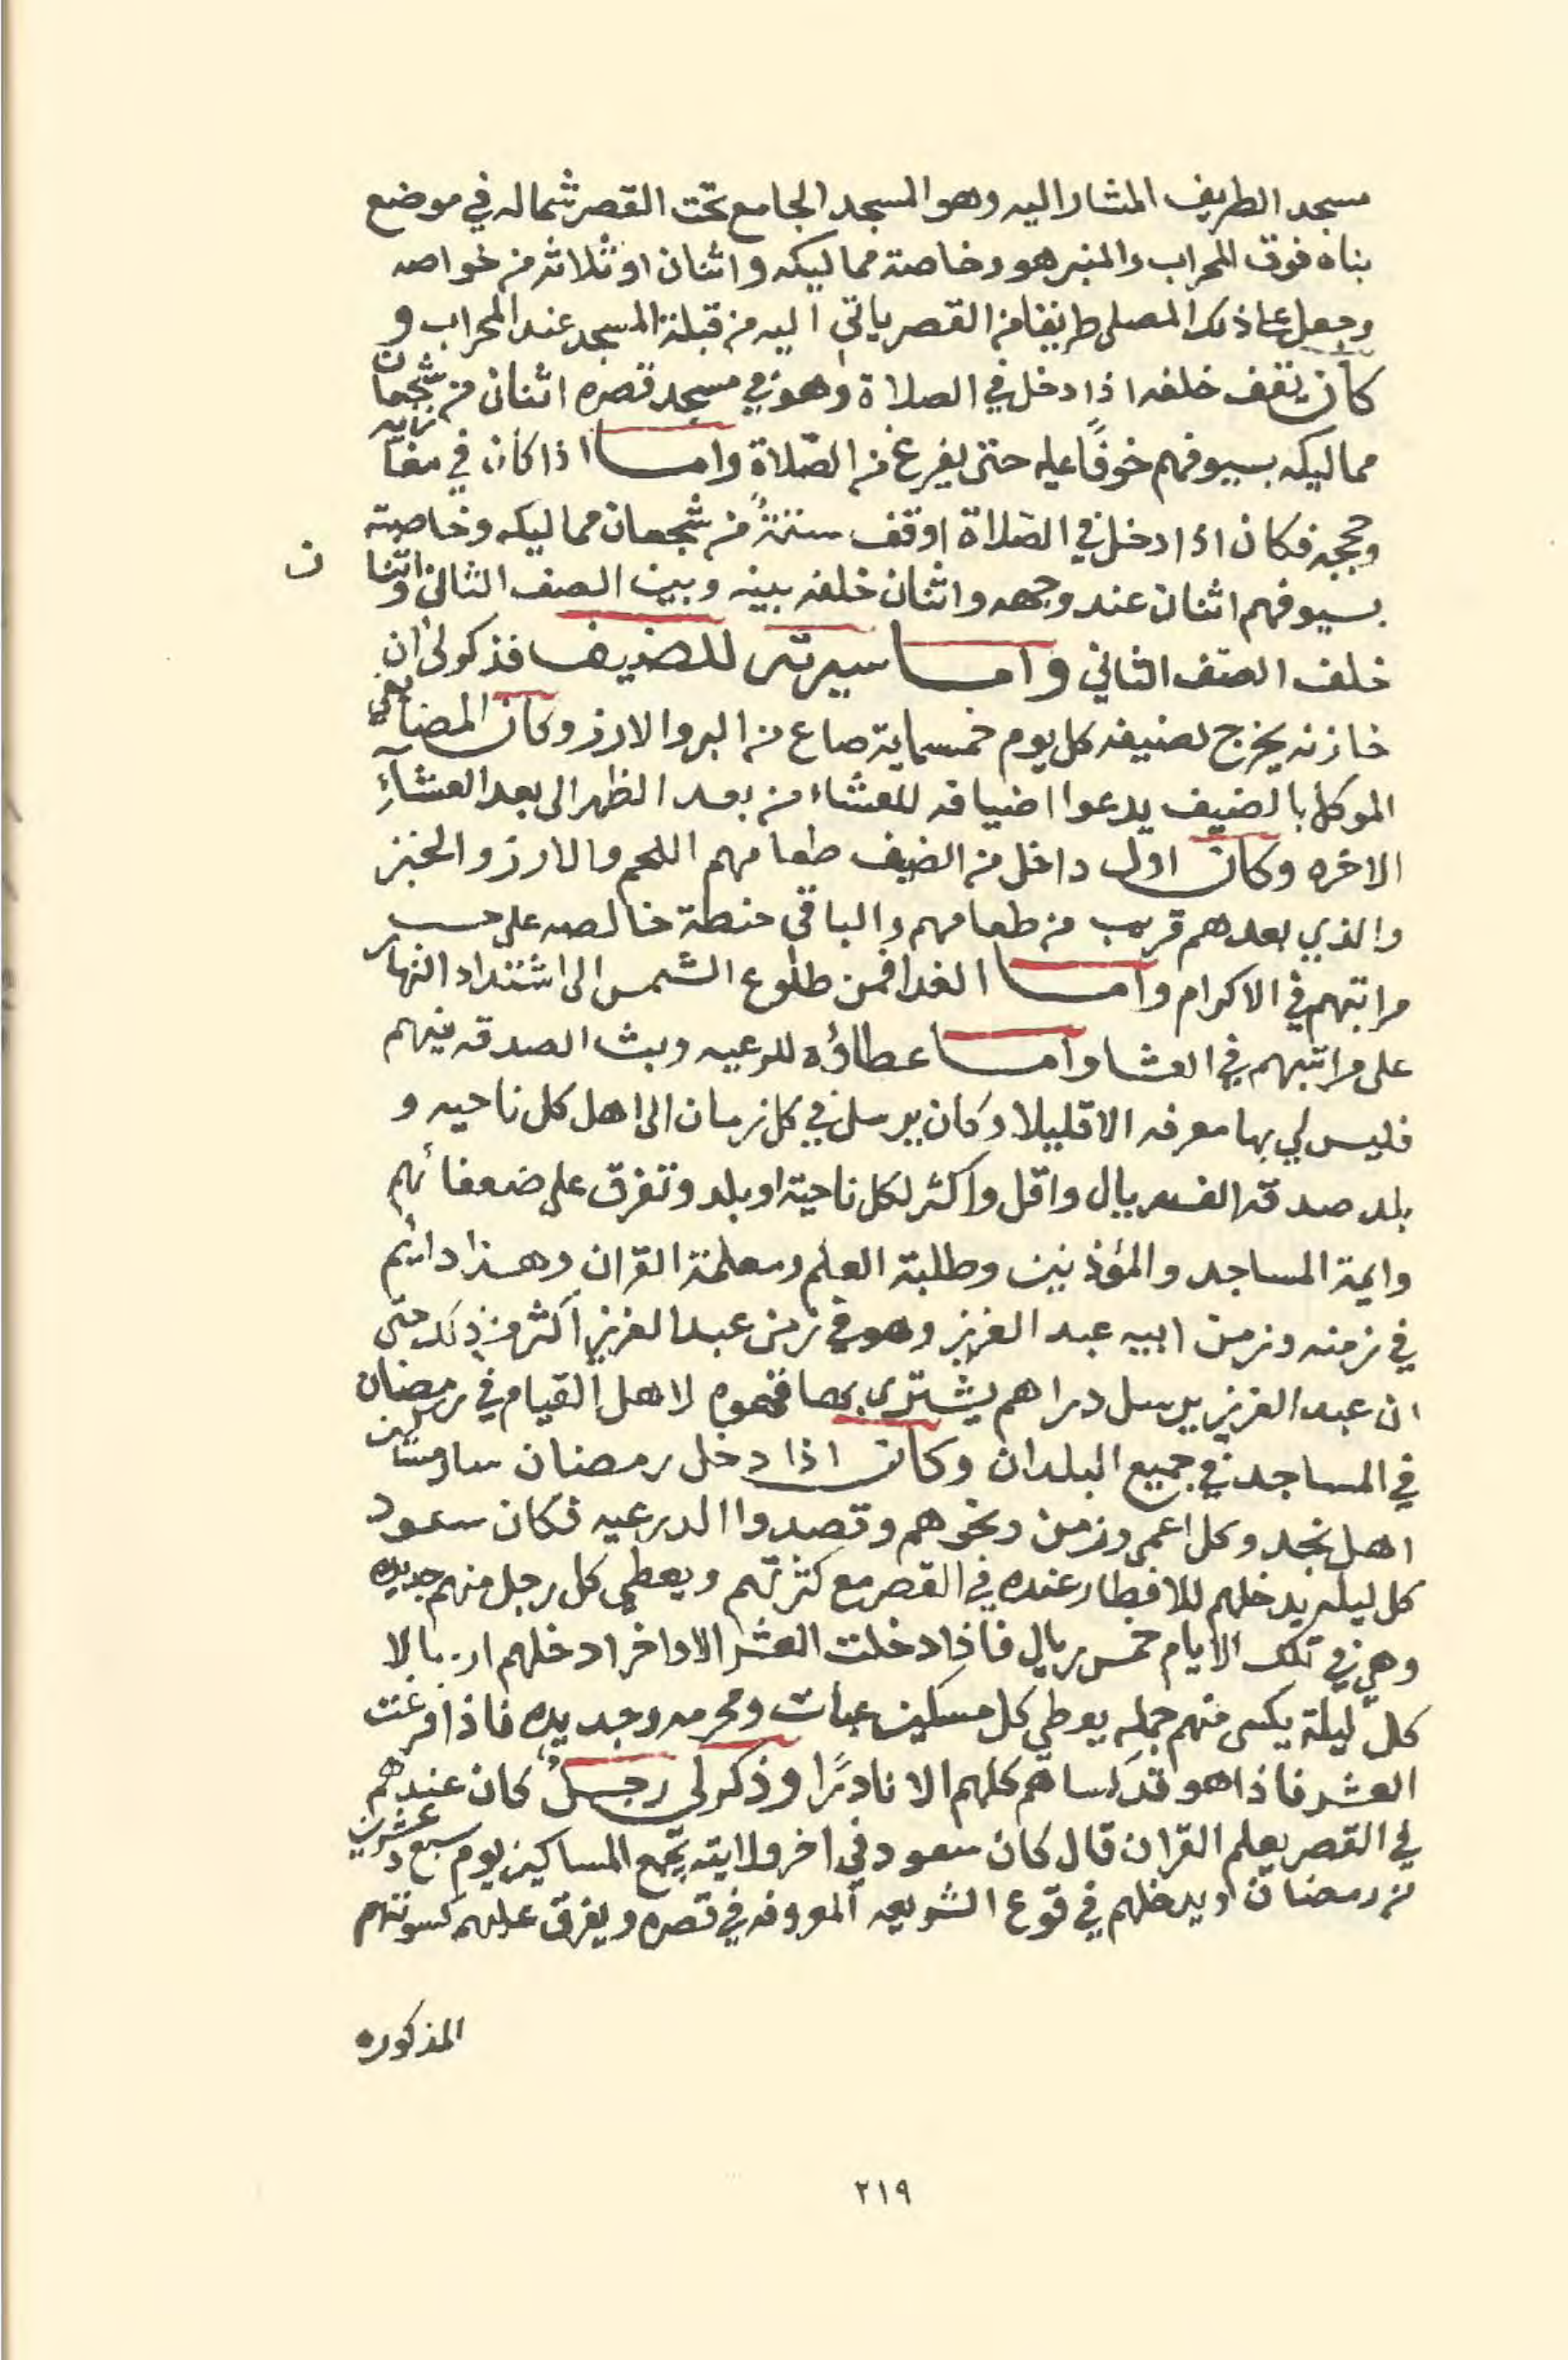 مسجد الطريف المشار اليه وهو المسجد الجامع تحت القصر شماله في موضع
بناه فوق المحراب والمنبر هو وخاصة مماليكه واثنان او ثلاثه من خواصه
وجعل على ذلك المصلى طريقا من القصر ياتي اليه من قبلة المسجد عند المحراب و
كان يقف خلفه اذا دخل في الصلاة وهو في مسجد قصره اثنان من شجعان
مماليكه بسيوفهم خوفًا عليه حتى يفرغ من الصّلاة واما اذا كان في مغازيه
وحججه فكان اذا دخل في الصلاة اوقف ستةً من شجعان مماليكه وخاصيته
بسيوفهم اثنان عند وجهه واثنان خلفه بينه وبين الصف الثاني واثنا ن
خلف الصف الثاني واما سيرته للضيف فذكر لي ان
خازنه يخرج لضيفه كل يوم خمسماية صاع من البر والارز وكان المضايفي
الموكل بالضيف يدعوا اضيافه للعشاء من بعد الظهر الى بعد العشآءِ
الاخره وكان اول داخل من الضيف طعامهم اللحم والارز والخبز
والذي بعدهم قريب من طعامهم والباقي حنطة خالصه على حسب
مراتبهم في الاكرام واما الغدا فمن طلوع الشمس الى اشتداد النهار
على مراتبهم في العشا واما عطاؤه للرعيه وبث الصدقه فيهم
فليس لي بها معرفه الا قليلا وكان يرسل في كل زمان الى اهل كل ناحيه و
بلد صدقه الف ريال واقل واكثر لكل ناحية او بلد وتفرق على ضعفائهم
وايمة المساجد والمؤذنين وطلبة العلم ومعلمة القران وهذا دائم
في زمنه وزمن ابيه عبد العزيز وهو في زمن عبد العزيز اكثر من ذلك حتى
ان عبد العزيز يرسل دراهم يشترى بها قهوه لاهل القيام في رمضان
في المساجد في جميع البلدان وكان اذا دخل رمضان سار مساكين
اهل نجد وكل اعمى وزمن ونحوهم وقصدوا الدرعيه فكان سعود
كل ليله يدخلهم للافطار عنده في القصر مع كثرتهم ويعطي كل رجل منهم جديده
وهي في تلك الايام خمس ريال فاذا دخلت العشر الاواخر ادخلهم ارسالا
كل ليلة يكسى منهم جمله يعطي كل مسكين عبات ومحرمه وجديده فاذا فرغت
العشر فاذا هو قد كساهم كلهم الا نادرًا وذكر لي رجل كان عندهم
في القصر يعلم القران قال كان سعود في اخر ولايته يجمع المساكين يوم سبع وعشرين
من رمضان ويدخلهم في قوع الشريعه المعروفه في قصره ويفرق عليهم كسوتهم
المذكوره
٢١٩